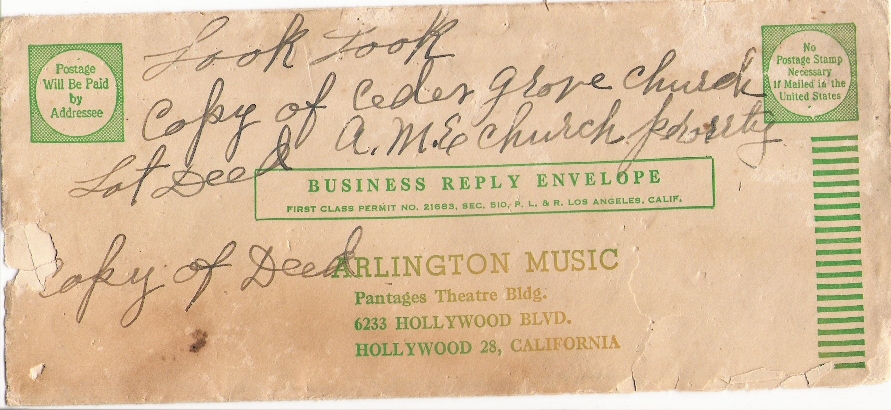 Look Look
Copy of Ceder Grove Church
Lot Deed A.M.E Church prorrty
Copy of Deed
Postage
Will Be Paid
by
Addressee
No
Postage Stamp
Necessary
If Mailed in the
United States
BUSINESS REPLY ENVELOPE
FIRST CLASS PERMIT NO. 21683, SEC. 510, P. L. & R. LOS ANGELES, CALIF.
ARLINGTON MUSIC
Pantages Theatre Bldg.
6233 HOLLYWOOD BLVD.
HOLLYWOOD 28, CALIFORNIA